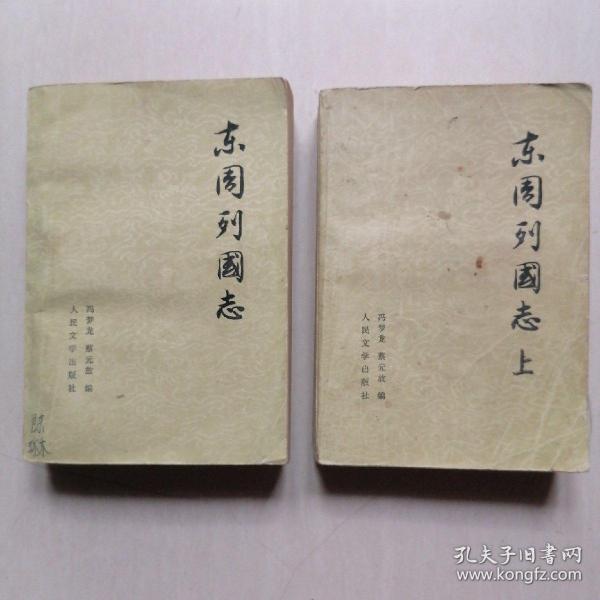 东周列國志
冯梦龙 蔡元放 编
人民文学出版社
东周列國志 上
冯梦龙 蔡元放 编
人民文学出版社
孔夫子旧书网
www.kongfz.com